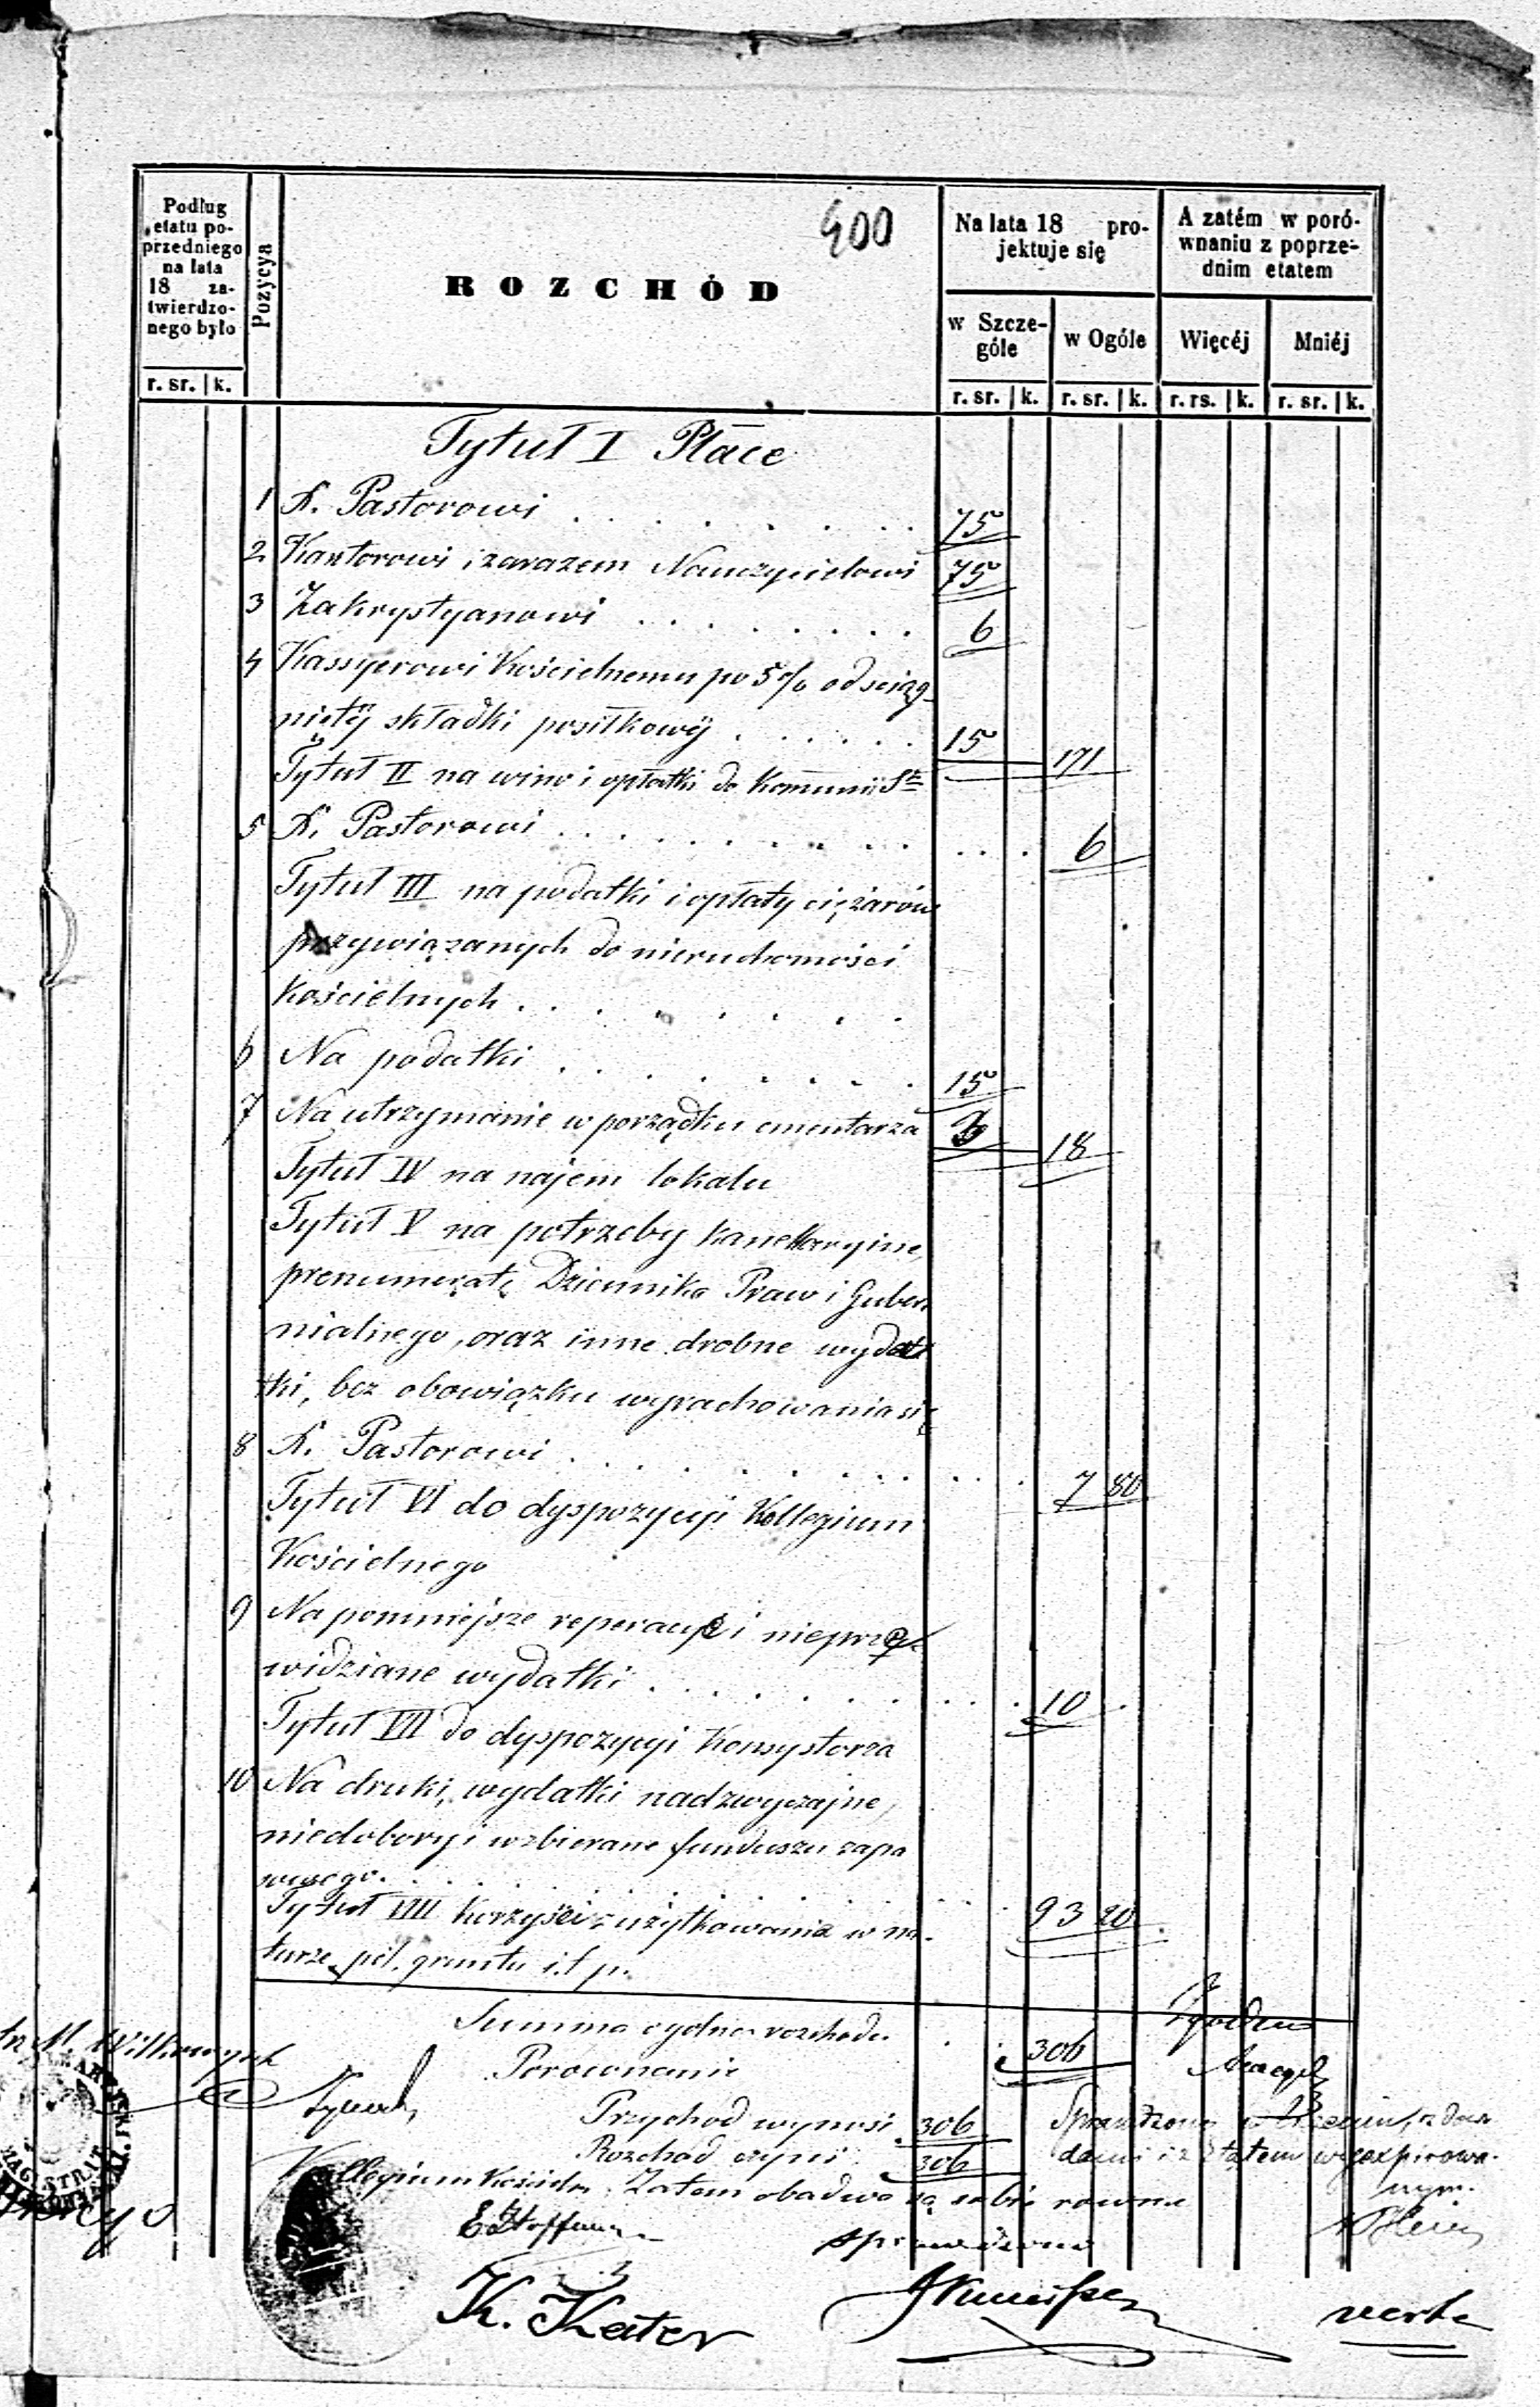 400
Podług etatu poprzedniego na lata 18 zatwierdzonego było
Pozycya
ROZCHÓD
Na lata 18 projektuje się
A zatém w porównaniu z poprzednim etatem
w Szczególe
w Ogóle
Więcéj
Mniéj
r. sr. k. r. sr. k. r. sr. k. r. rs. k. r. sr. k.
Tytuł I Płace
1 X. Pastorowi . . . . . . . 75
2 Kantorowi i zarazem Nauczycielowi 75
3 Zakrystyanowi . . . . . . . 6
4 Kassyerowi Kościelnemu po 5 % od sciąg-
niętÿ składki posiłkowÿ . . . . . 15 171
Tytuł II na wino i opłatki do Komunii Sté
5 X. Pastorowi . . . . . . . . . . 6
Tytuł III na podatki i opłaty ciężarów
przywiązanych do nieruchomości
Kościelnych . . . . . . .
6 Na podatki . . . . . . . 15
7 Na utrzymanie w porządku cmentarza 3 18
Tytuł IV na najem lokalu
Tytuł V na potrzeby kancellaryjne,
prenumeratę Dziennika Praw i Guber
nialnego, oraz inne drobne wydat
tki, bez obowiązku wyrachowania się
8 X. Pastorowi . . . . . . . . . 7 80
Tytuł VI do dyspozycyi Kollegium
Kościelnego
9 Na pomniejsze reperacye i nieprze
widziane wydatki . . . . . . . 10
Tytuł VII do dyspozycyi Konsystorza
10 Na druki, wydatki nadzwyczajne,
niedobory i wzbieranie funduszu zapa
sowego . . . . . . . . . 93 20
Tytuł VIII Korzyści z użytkowania w na-
turze pól. gruntu i.t.p.
Summa ogólna rozchodu . . 306
Porównanie
Przychod wynosi 306
Rozchod czyni 306
Kollegium Kościelne Zatem obadwa są sobie rowne
Sprawdzono
E. Hoffman
K. Kater
verte